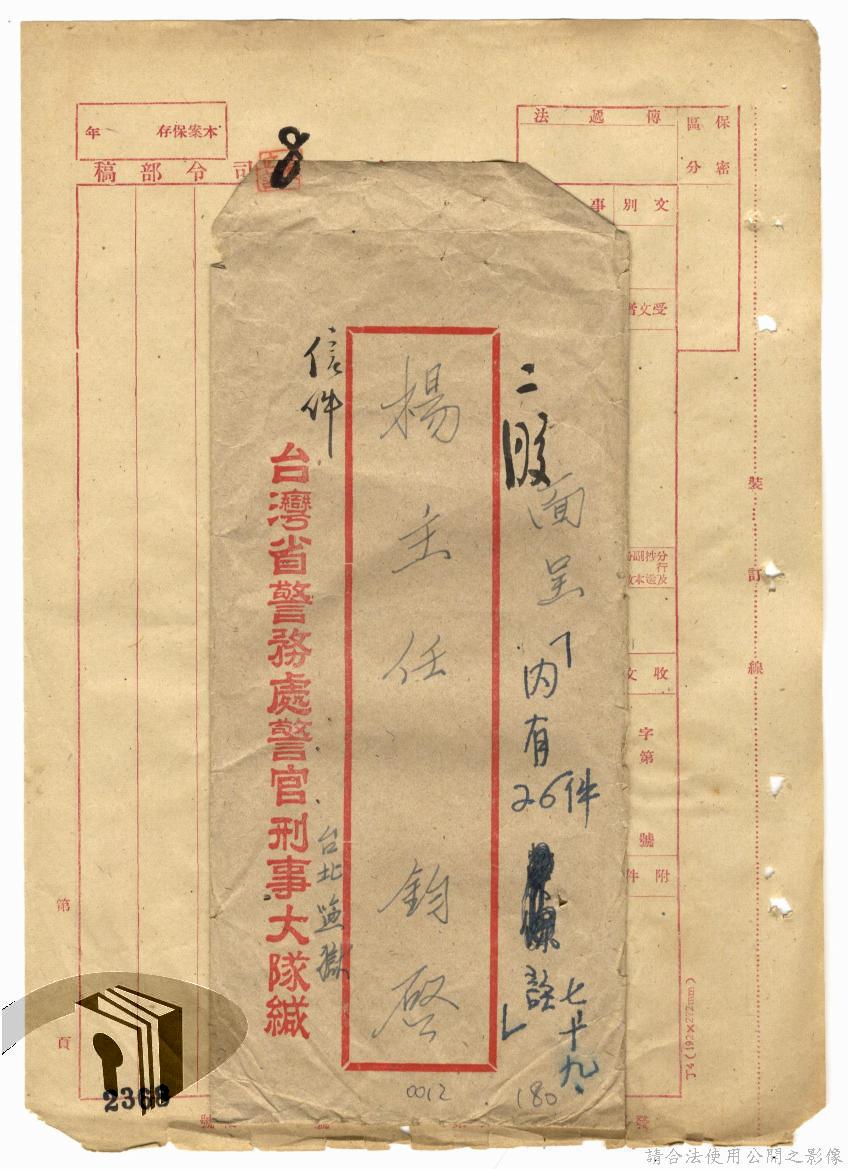 保密
區分
傳遞法
文別
事
受文者
分行及
抄副
送本
收文
字第
號
附件
裝訂線
本案保存
年
司令部稿
8
二股
面呈
「內有
26件
註」
七十九
楊主任 鈞啓
信件
台灣省警務處警官刑事大隊緘
台北監獄
第
頁
(192×272mm)
0012
180
2368
號
請合法使用公開之影像